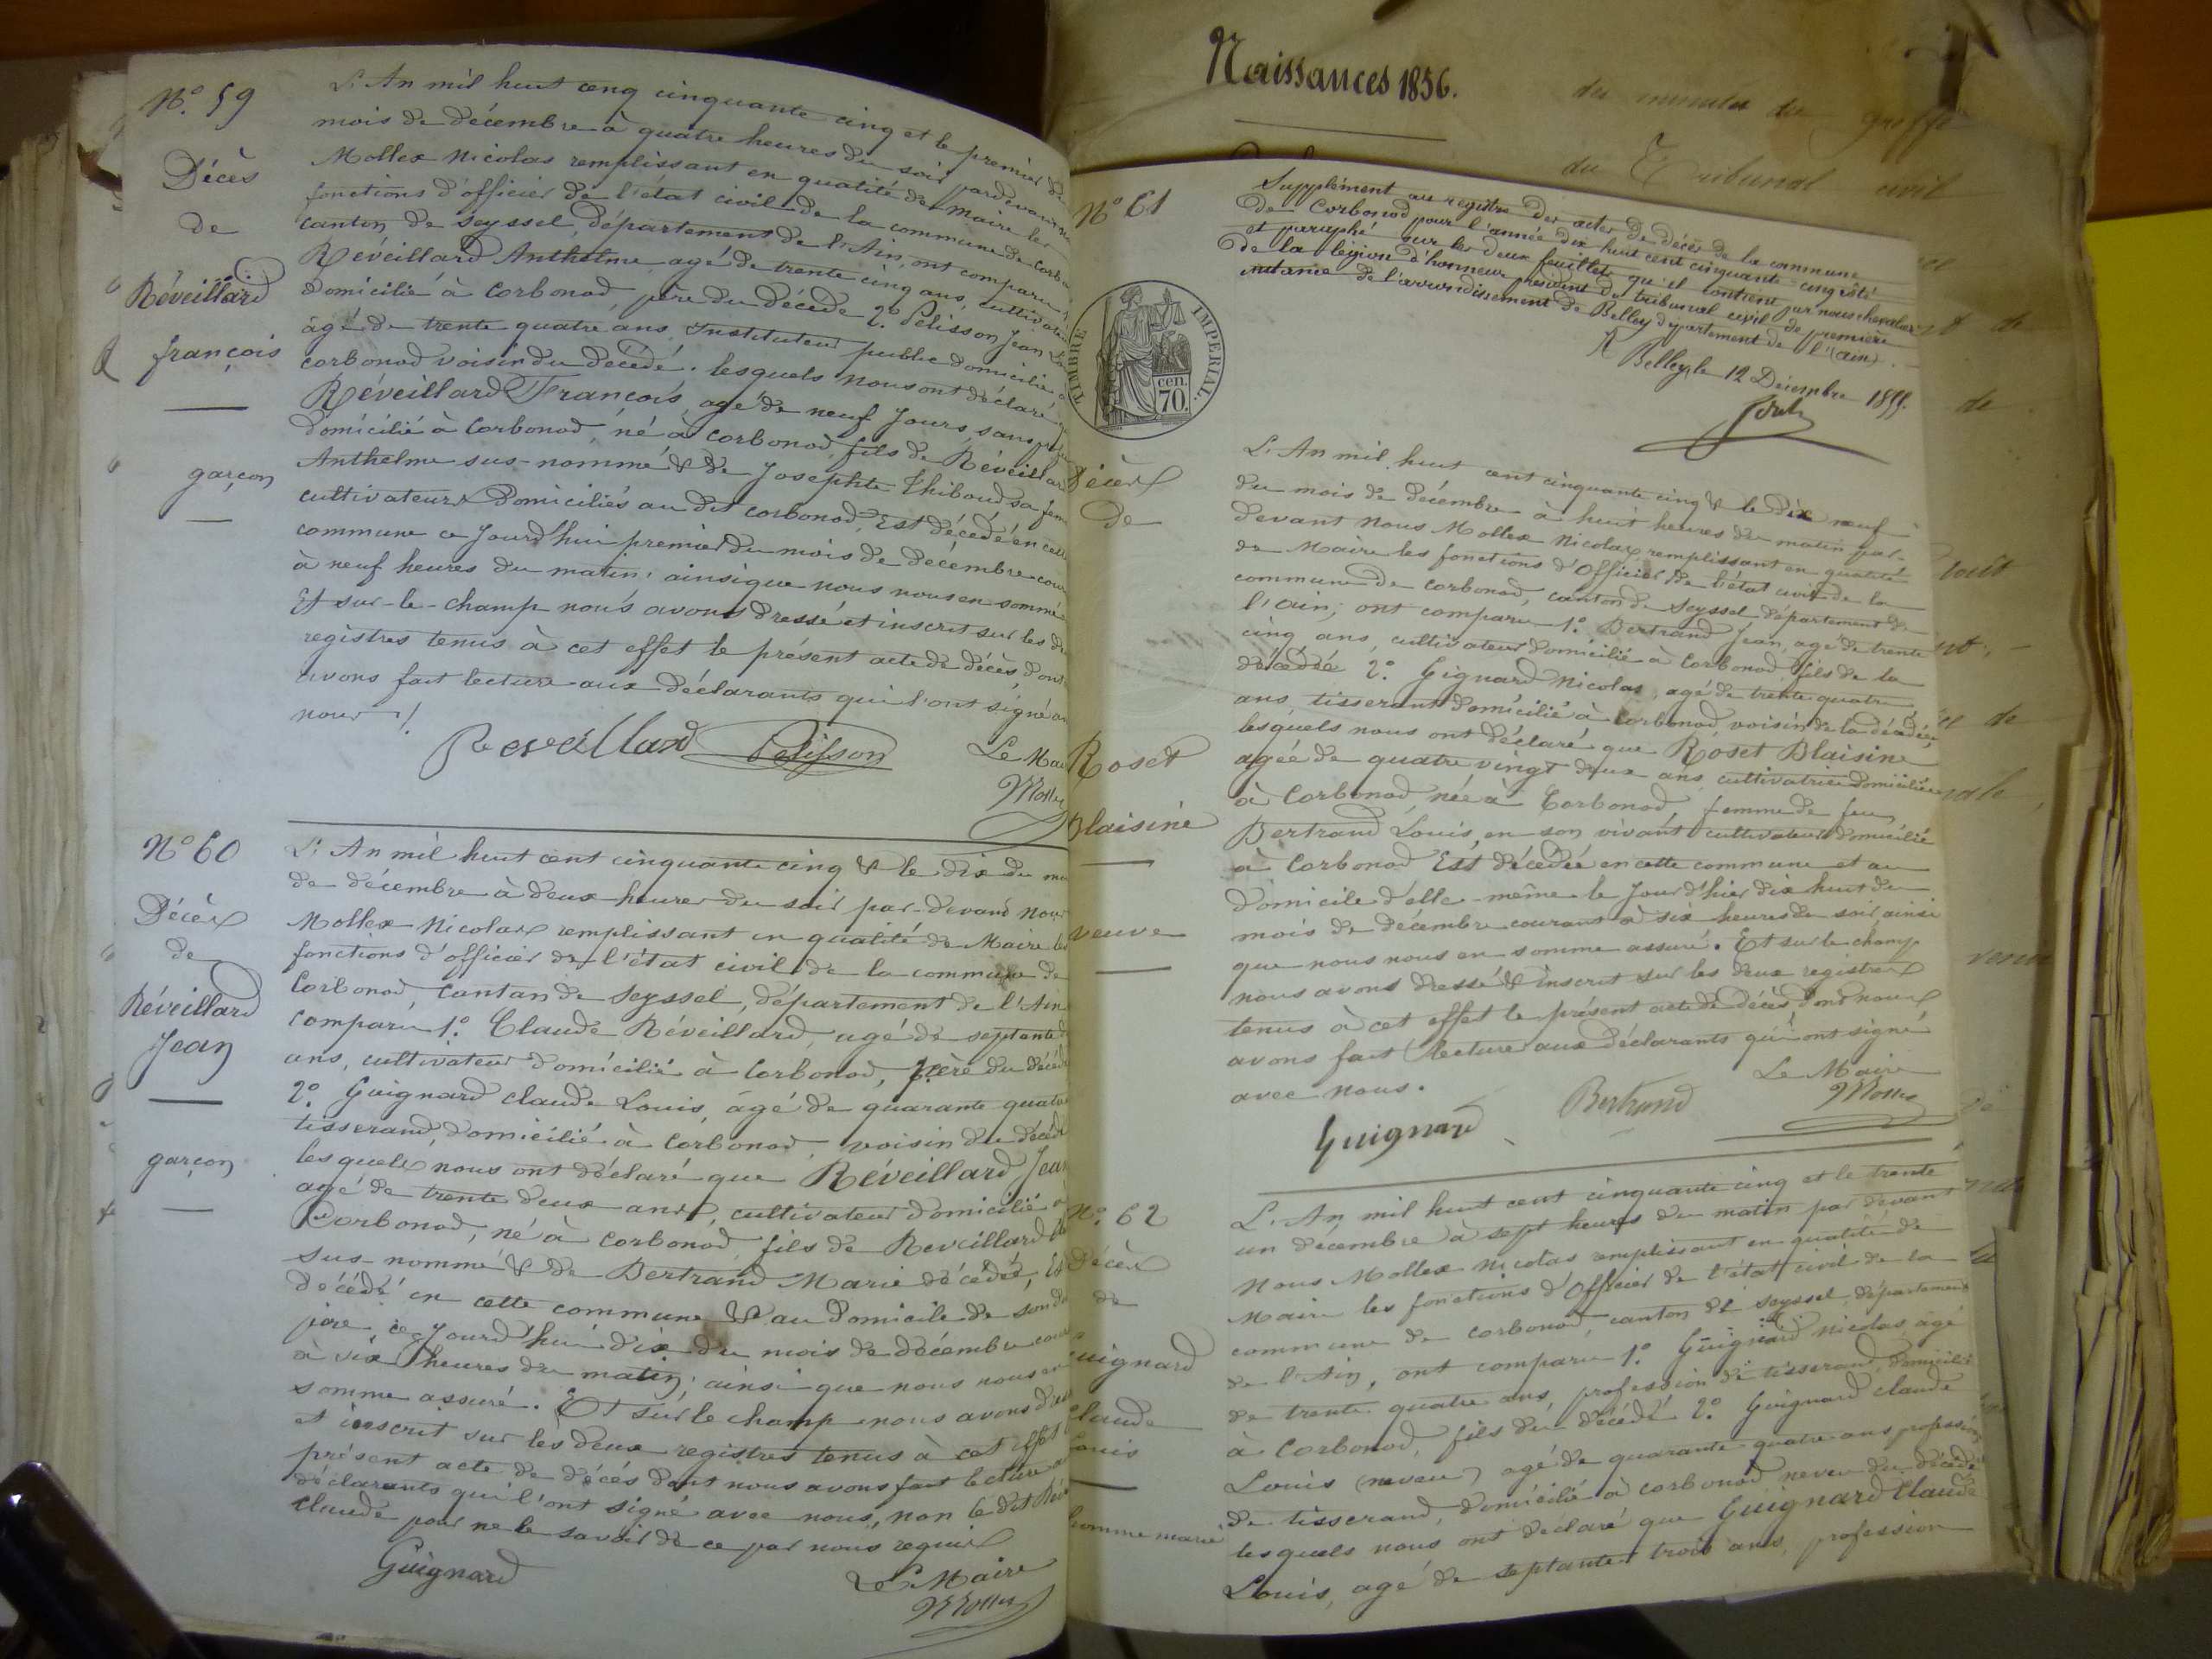 N.° 59
Décès
de
Réveillard
françois
garçon
L'An mil huit cenq cinquante cinq et le premier du
mois de décembre à quatre heures du soir pardevant
Mollex Nicolas remplissant en qualité de Maire les
fonctions d'officier de l'état civil de la commune de Corbo
canton de Seyssel, département de l'Ain, ont comparu
Réveillard Anthelme, agé de trente cinq ans, cultivateur
domicilié à Corbonod, père du décédé 2° Pélisson Jean
âgé de trente quatre ans Instituteur public domicilié à
corbonod voisin du décédé. lesquels nous ont déclaré
Réveillard François, agé de neuf Jours, sans
domicilié à Corbonod, né à Corbonod, fils de Réveillar
Anthelme sus-nommé & de Josephte Thiboud, sa fem
cultivateurs domiciliés au dit corbonod, Est décédé en cette
commune ce Jourd'hui premier du mois de décembre cour
à neuf heures du matin; ainsi que nous nous en somme
Et sur-le-champ nous avons dressé et inscrit sur les de
registres tenus à cet effet le présent acte de décès, dont
avons fait lecture aux déclarants qui l'ont signé a
nous
Reveillard Pelisson
Le Mai
Molle
N° 60
Décès
de
Réveillard
Jean
garçon
L'An mil huit cent cinquante cinq & le dix du mo
de décembre à deux heures du soir par-devant Nous
Mollex Nicolas remplissant en qualité de Maire les
fonctions d'officier de l'état civil de la commune de
Corbonod, Canton de Seyssel, département de l'Ain
comparu 1.° Claude Réveillard, agé de septante
ans, cultivateur domicilié à Corbonod, père du décédé
2.° Guignard Claude Louis, âgé de quarante quatre
tisserand, domicilié à Corbonod, voisin du décédé
lesquels nous ont déclaré que Réveillard Jean
agé de trente deux ans, cultivateur domicilié à
Corbonod, né à Corbonod, fils de Reveillard
sus-nommé & de Bertrand Marie décédée, Est
décédé en cette commune & au domicile de son dit
père ce Jourd'hui dix du mois de décembre cour
à six heures du matin; ainsi que nous nous en
somme assuré. Et sur le champ nous avons
et inscrit sur les deux registres tenus à cet effet
présent acte de décés dont nous avons fait lecture
déclarants qui l'ont signé avec nous, non le dit
Claude pour ne le savoir de ce par nous requis
Guignard
Le Maire
Mollex
Naissances 1856.
des minutes du greffe
du Tribunal civil
N° 61
Supplément au registre des actes de décès de la commune
de Corbonod pour l'année dix huit cent cinquante-cinq côté
et paraphé sur les deux feuillets qu'il contient par nous chevalier
de la légion d'honneur président du tribunal civil de première
instance de l'arrondissement de Belley département de l'(ain).
A Belley, le 12 Décembre 1855.
TIMBRE IMPERIAL.
70. cen.
Décès
de
Roset
Blaisine
veuve
L'An mil huit cent cinquante cinq & le dix neuf
du mois de décembre à huit heures du matin par-
devant Nous Mollex Nicolas remplissant en qualité
de Maire les fonctions d'Officier de l'état civil de la
commune de Corbonod, canton de Seyssel, département de
l'Ain; ont comparu 1.° Bertrand Jean, agé de trente
cinq ans, cultivateur domicilié à Corbonod, fils de la
décédée 2.° Gignard Nicolas, agé de trente quatre
ans, tisserant domicilié à Corbonod, voisin de la décédée,
lesquels nous ont déclaré que Roset Blaisine
agée de quatre vingt deux ans cultivatrice domiciliée
à Corbonod née à Corbonod femme de feu
Bertrand Louis, en son vivant cultivateur domicilié
à Corbonod Est décédée en cette commune et au
domicile d'elle-même le Jour d'hier dix huit du
mois de décembre courant à six heures du soir, ainsi
que nous nous en somme assuré. Et sur le champ
nous avons dressé & inscrit sur les deux registres
tenus à cet effet le présent acte de décès, dont nous
avons fait lecture aux déclarants qui ont signé
avec nous.
Le Maire
Guignard Bertrand Mollex
N.° 62
Décès
de
uignard
laude
ouis
homme marié
L'An mil huit cent cinquante cinq et le trente
un décembre à sept heures du matin par devant
Nous Mollex Nicolas remplissant en qualité de
Maire les fonctions d'Officier de l'état civil de la
commune de Corbonod, canton de Seyssel, département
de l'Ain, ont comparu 1.° Guignard Nicolas, agé
de trente quatre ans, profession de tisserand, domicilié
à Corbonod, fils du décédé 2.° Guignard Claude
Louis (neveu) agé de quarante quatre ans profession
de tisserand, domicilié à Corbonod neveu du décédé
lesquels nous ont déclaré que Guignard Claude
Louis, agé de septante trois ans, profession